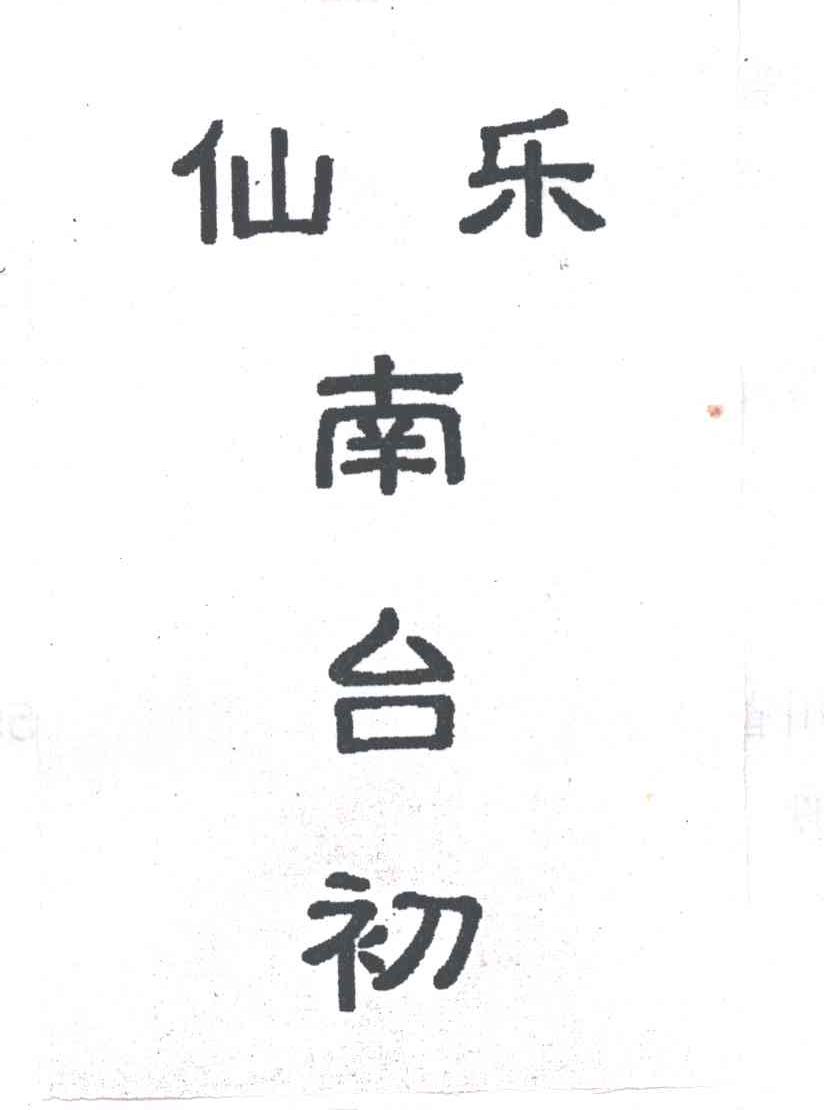 仙 乐
南
台
初